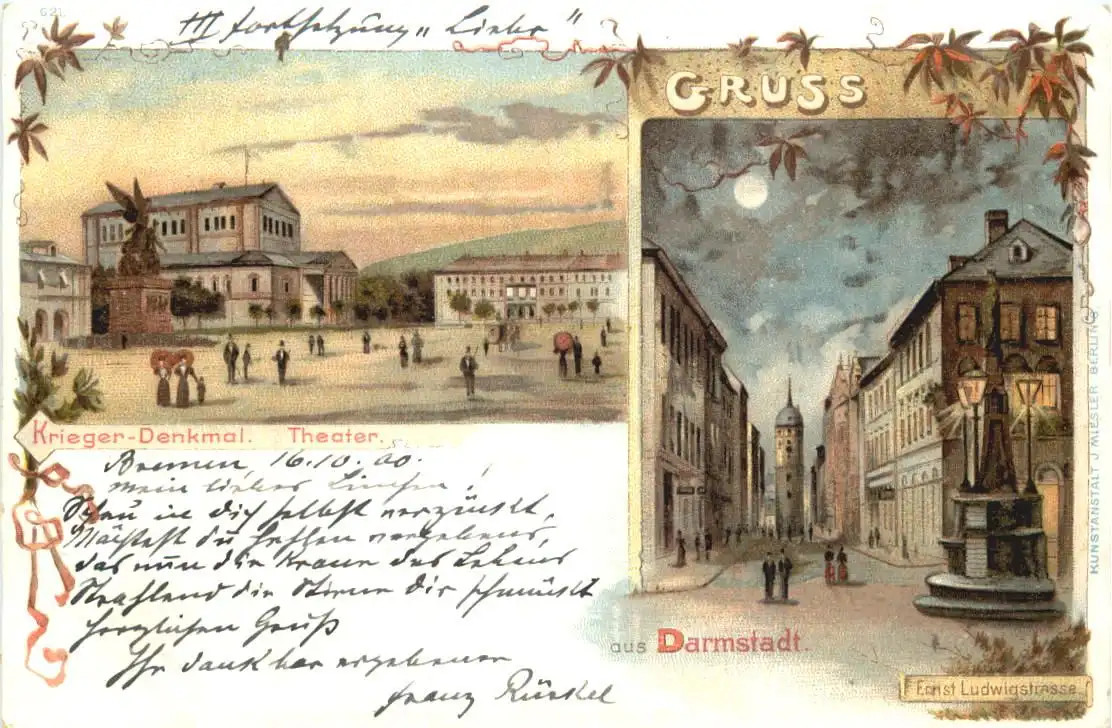 621
III Fortsetzung „Liebe"
GRUSS
Krieger-Denkmal. Theater.
Bremen, 16.10.00.
Mein liebes !
Schau in dich selbst verzückt,
du hoffen vergebens,
das nun die Krone des Lebens
Strahlend die Stirne dir schmückt
Herzlichen Gruß
Ihr dankbar ergebener
Franz
aus Darmstadt.
Ernst Ludwigstrasse
KUNSTANSTALT J MIESLER BERLIN S.